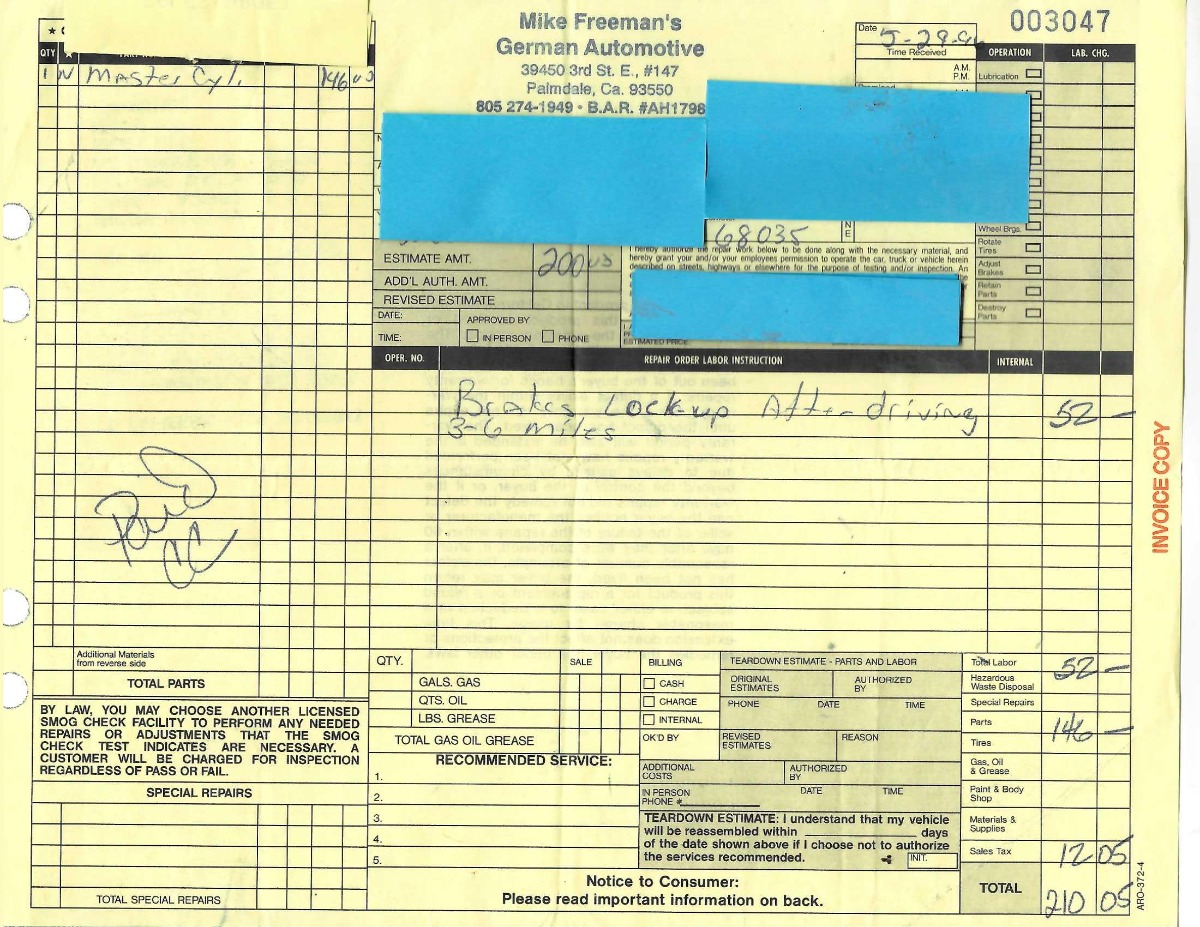 Mike Freeman's
German Automotive
39450 3rd St. E., #147
Palmdale, Ca. 93550
805 274-1949 • B.A.R. #AH1798
003047
Date
5-29-96
Time Received
A.M.
P.M.
OPERATION
LAB. CHG.
Lubrication
QTY
1 N Master Cyl. 146 00
Wheel Brgs.
Rotate
Tires
Adjust
Brakes
Retain
Parts
Destroy
Parts
68035
N
E
I hereby authorize the repair work below to be done along with the necessary material, and
hereby grant your and/or your employees permission to operate the car, truck or vehicle herein
described on streets, highways or elsewhere for the purpose of testing and/or inspection. An
ESTIMATE AMT. 200 00
ADD'L AUTH. AMT.
REVISED ESTIMATE
DATE:
APPROVED BY
TIME:
IN PERSON PHONE
ESTIMATED PRICE
OPER. NO. REPAIR ORDER LABOR INSTRUCTION INTERNAL
Brakes Lock-up After driving 52 —
3-6 miles
Paid
CC
INVOICE COPY
Additional Materials
from reverse side
TOTAL PARTS
BY LAW, YOU MAY CHOOSE ANOTHER LICENSED
SMOG CHECK FACILITY TO PERFORM ANY NEEDED
REPAIRS OR ADJUSTMENTS THAT THE SMOG
CHECK TEST INDICATES ARE NECESSARY. A
CUSTOMER WILL BE CHARGED FOR INSPECTION
REGARDLESS OF PASS OR FAIL.
SPECIAL REPAIRS
TOTAL SPECIAL REPAIRS
QTY. SALE
GALS. GAS
QTS. OIL
LBS. GREASE
TOTAL GAS OIL GREASE
RECOMMENDED SERVICE:
1.
2.
3.
4.
5.
BILLING
CASH
CHARGE
INTERNAL
OK'D BY
TEARDOWN ESTIMATE - PARTS AND LABOR
ORIGINAL
ESTIMATES
AUTHORIZED
BY
PHONE DATE TIME
REVISED
ESTIMATES
REASON
ADDITIONAL
COSTS
AUTHORIZED
BY
IN PERSON
PHONE #
DATE TIME
TEARDOWN ESTIMATE: I understand that my vehicle
will be reassembled within ____________ days
of the date shown above if I choose not to authorize
the services recommended. INIT.
Notice to Consumer:
Please read important information on back.
Total Labor 52 —
Hazardous
Waste Disposal
Special Repairs
Parts 146 —
Tires
Gas, Oil
& Grease
Paint & Body
Shop
Materials &
Supplies
Sales Tax 12 05
TOTAL 210 05
ARO-372-4